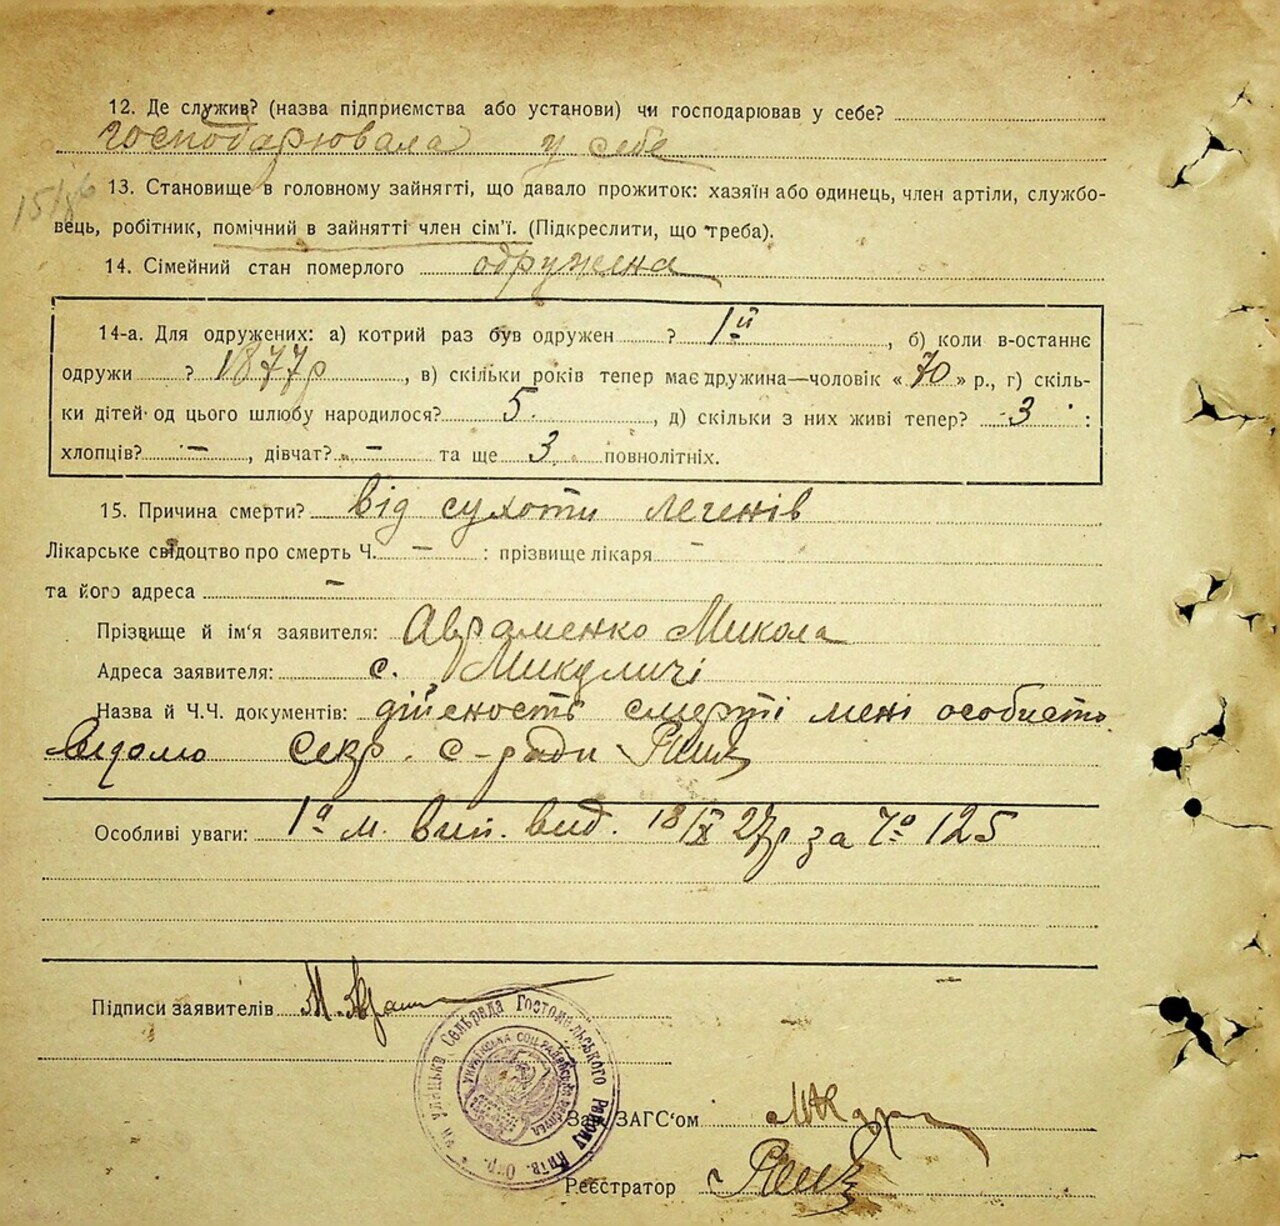 12. Де служив? (назва підприємства або установи) чи господарював у себе?
господарювала у себе
13. Становище в головному зайнятті, що давало прожиток: хазяїн або одинець, член артіли, службо-
вець, робітник, помічний в зайнятті член сім'ї. (Підкреслити, що треба).
14. Сімейний стан померлого одружена
14-а. Для одружених: а) котрий раз був одружен ? 1й, б) коли в-останнє
одружи ? 1877р, в) скільки років тепер має дружина—чоловік «70» р., г) скіль-
ки дітей од цього шлюбу народилося? 5., д) скільки з них живі тепер? 3 :
хлопців? —, дівчат? — та ще 3 повнолітніх.
15. Причина смерти? від сухоти легенів
Лікарське свідоцтво про смерть Ч. — : прізвище лікаря —
та його адреса —
Прізвище й ім'я заявителя: Авраменко Микола
Адреса заявителя: с. Микуличі
Назва й Ч.Ч. документів: дійсность смерті мені особисто
відомо секр. с-ради
Особливі уваги: 1а м. вип. вид. 18/IX 27р за Чо 125
Підписи заявителів
Сельрада Гостомільського Району Київ. Окр.
УКРАЇНСЬКА СОЦ. РАДЯНСЬКА
Зав. ЗАГС'ом
Реєстратор